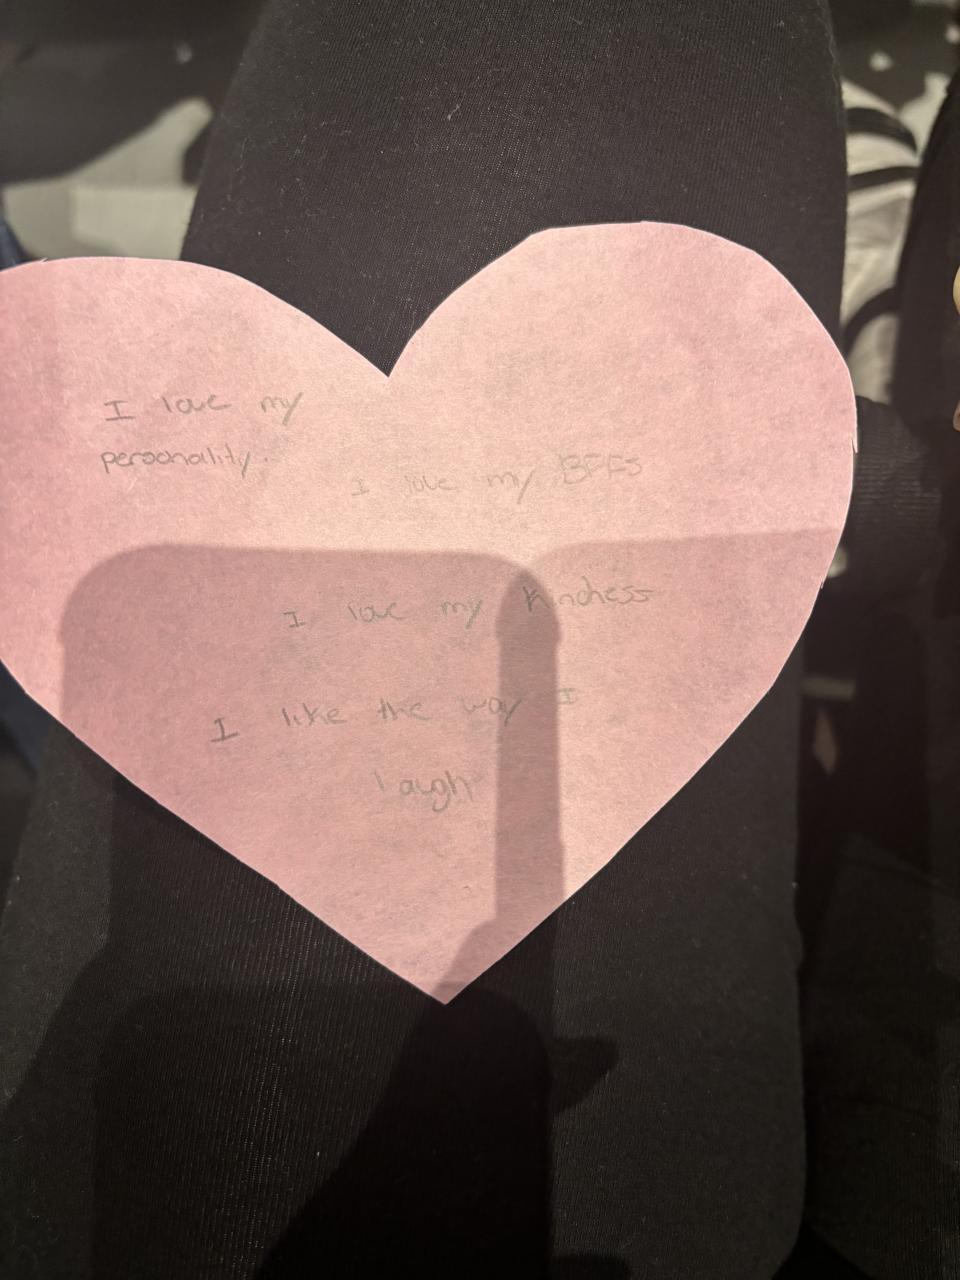 I love my
personality.
I love my BFFS
I love my kindness
I like the way I
laugh